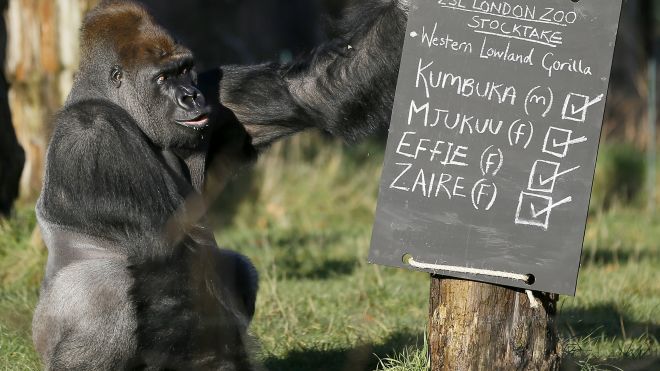 ZSL LONDON ZOO
STOCKTAKE
• Western Lowland Gorilla
KUMBUKA (m)
MJUKUU (f)
EFFIE (f)
ZAIRE (f)